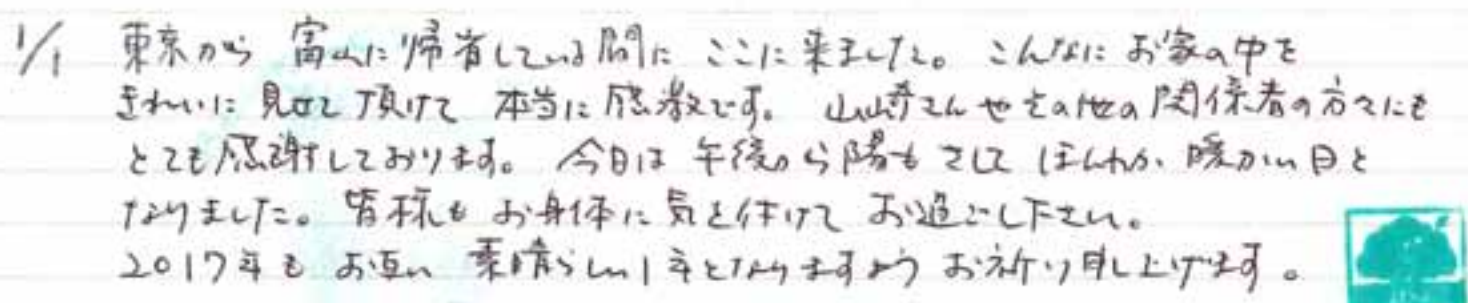 1/1 東京から富山に帰省している間に ここに来ました。こんなに お家の中を
きれいに 見せて頂けて 本当に感激です。山崎さんやその他の関係者の方々にも
とても感謝しております。今日は 午後から陽もさして ほんわか、暖かい日と
なりました。皆様も お身体に気を付けて お過ごし下さい。
2017年も お互い 素晴らしい1年となりますよう お祈り申し上げます。